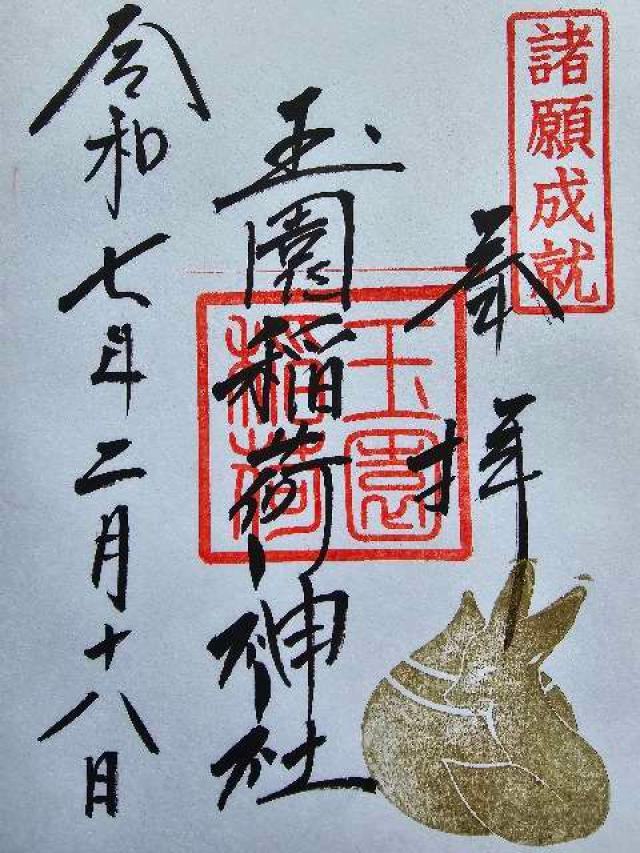 諸願成就
奉拝
玉園稲荷神社
玉園
稲荷
令和七年二月十八日